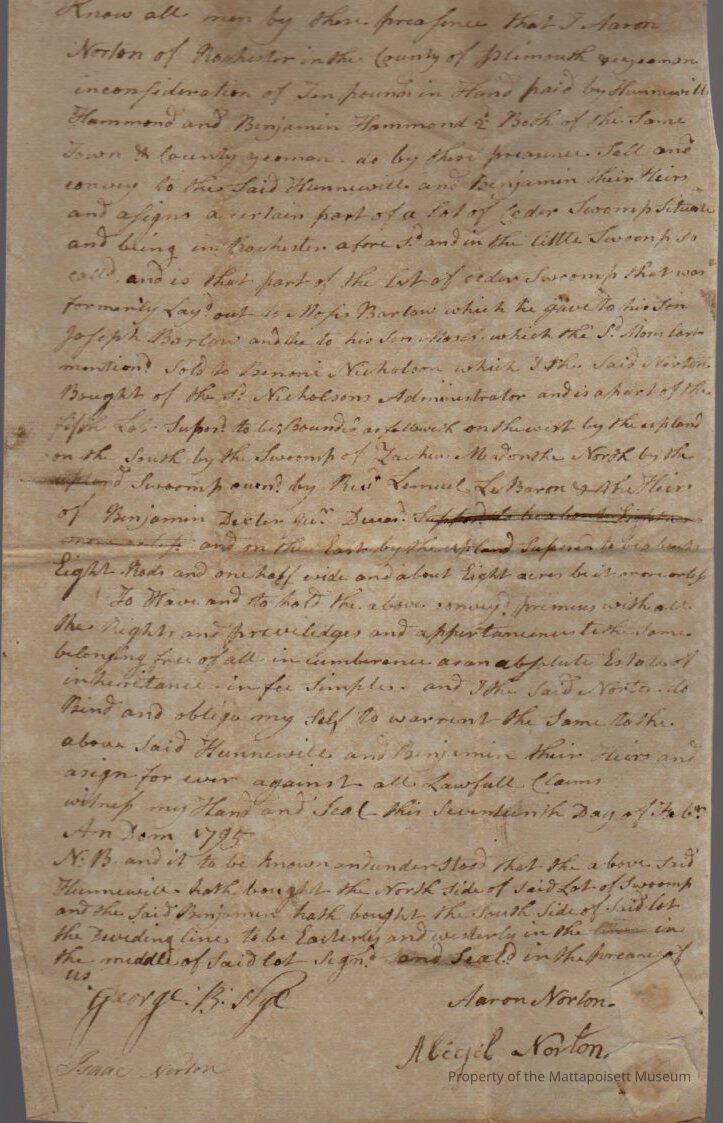 Know all men by these preasence that I Aaron
Norton of Rochester in the County of Plimouth yeoman
inconsideration of Ten pounds in Hand paid by Hunnewill
Hammond and Benjamin Hammond Both of the Same
Town & County yeoman do by these preasence Sell and
convey to the Said Hunnewill and Benjamin their Heirs
and asigns a certain part of a Lot of Ceder Swoomp Situate
and being in Rochester afore Sd and in the little Swoomp so
calld and is that part of the Lot of ceder Swoomp that was
formerly Layd out to Moses Barlow which he gave to his Son
Joseph Barlow and he to his Son Moses which the Sd Moses last
mentiond Sold to Benoni Nicholson which I the Said Norton
Bought of the Sd Nicholsons Administrator and is a part of the
fifth Lot Suposd to be Bounded as followeth on the west by the upland
on the South by the Swoomp of Zacheus Mead on the North by the
Swoomp ownd by Revd Lemuel LeBaron & the Heirs
of Benjamin Dexter Decesd Supposed to be about Eight acres
more or less and on the East by the upland Suposed to be about
Eight Rods and one half wide and about Eight acres be it more or less
To Have and to hold the above conveyd primises with all
the Rights and priviledges and appurtanences to the Same
belonging free of all incumberence as an absolute Estate of
inheritance in fee Simple and I the Said Norton do
Bind and oblige my Self to warrent the Same to the
above Said Hunnewill and Benjamin their Heirs and
asign for ever against all Lawfull Claims
witness my Hand and Seal this Seventeenth Day of Febr
An Dom 1795
N.B. and it to be known and understood that the above said
Hunnewill hath bought the North Side of Said Lot of Swoomp
and the Said Benjamin hath bought the South Side of Said lot
the Dividing line to be Easterly and westerly in the in
the middle of Said lot Signd and Seald in the preance of
us
George B. Nye Aaron Norton
Abigel Norton
Isaac Norton
Property of the Mattapoisett Museum